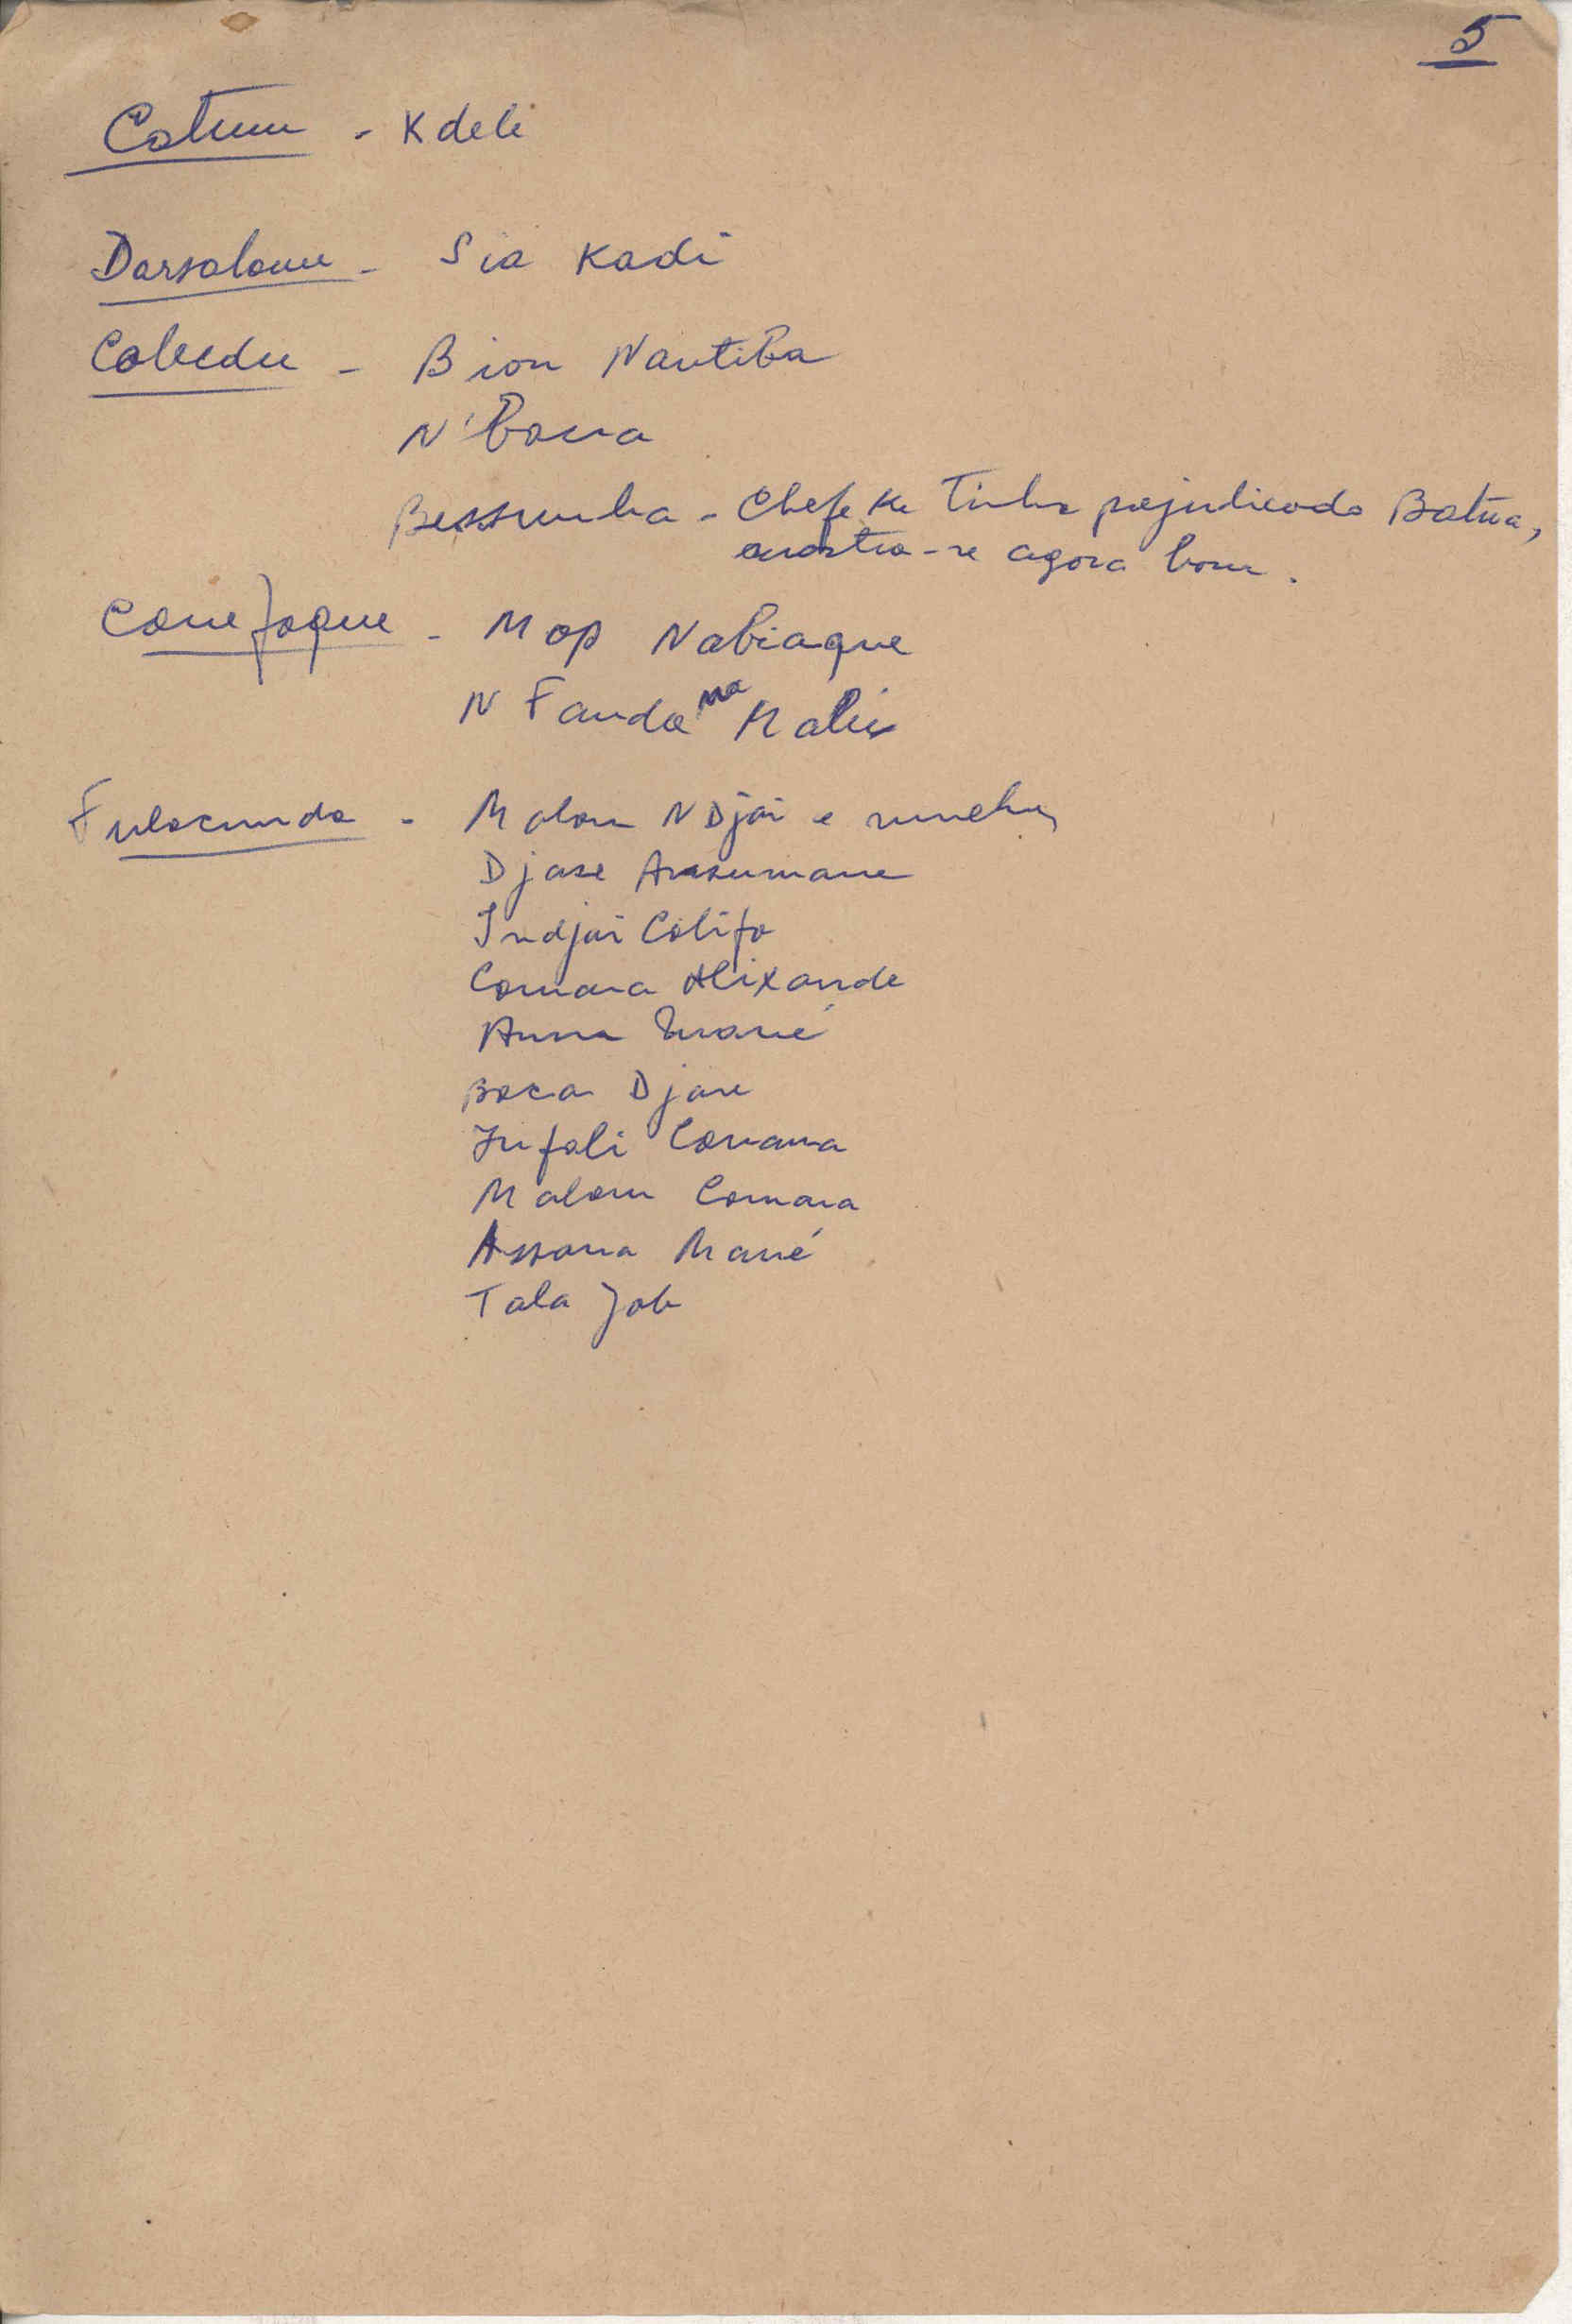 5
Catum - Kdeli
Darsalame - Sia Kadi
Cabedu - Bion Nantiba
N'Bana
Bessumba - Chefe ke Tinha prejudicado Batúa,
mostra-se agora bom.
Canefaque - Mop Nabiaque
N Fanda na Mali
Fulacunda - Malam N Djai e
Djase Ansumane
Indjai Califa
Camara Alixandre
Ansu Mané
Baca Djase
Infali Camara
Malam Camara
Assana Mané
Tala Job